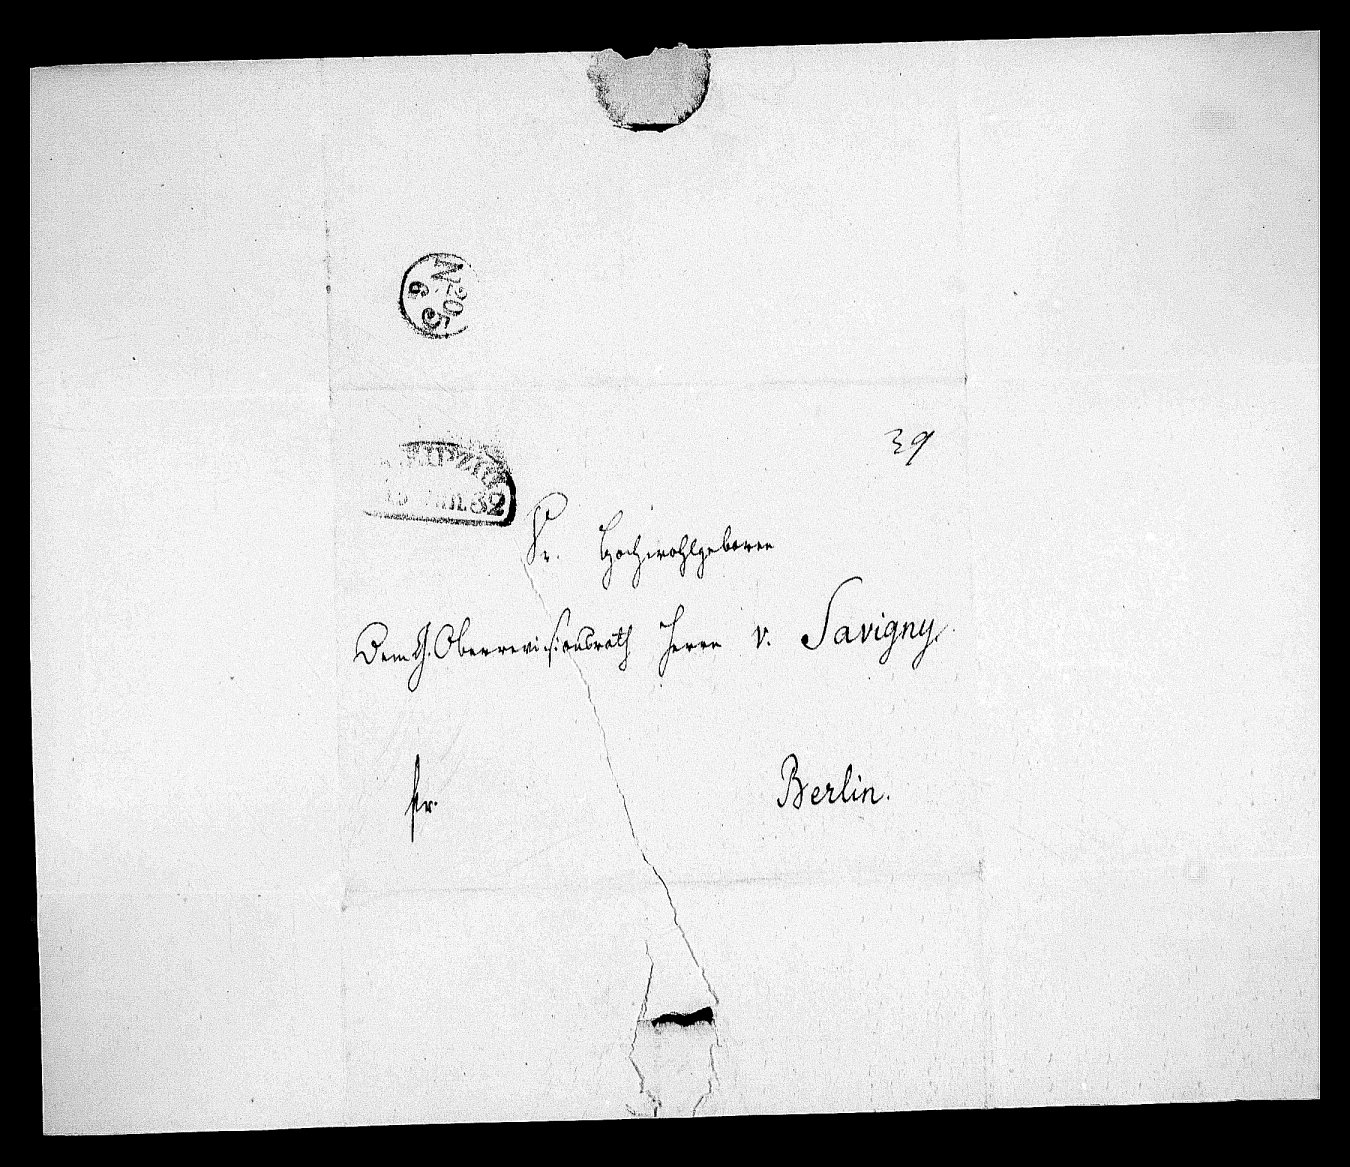 N 205
6 5
39
LEIPZIG
15 Jan. 32
Sr. Hochwohlgeboren
Dem G. Oberrevisionsrath Herrn v. Savigny.
fr.
Berlin.